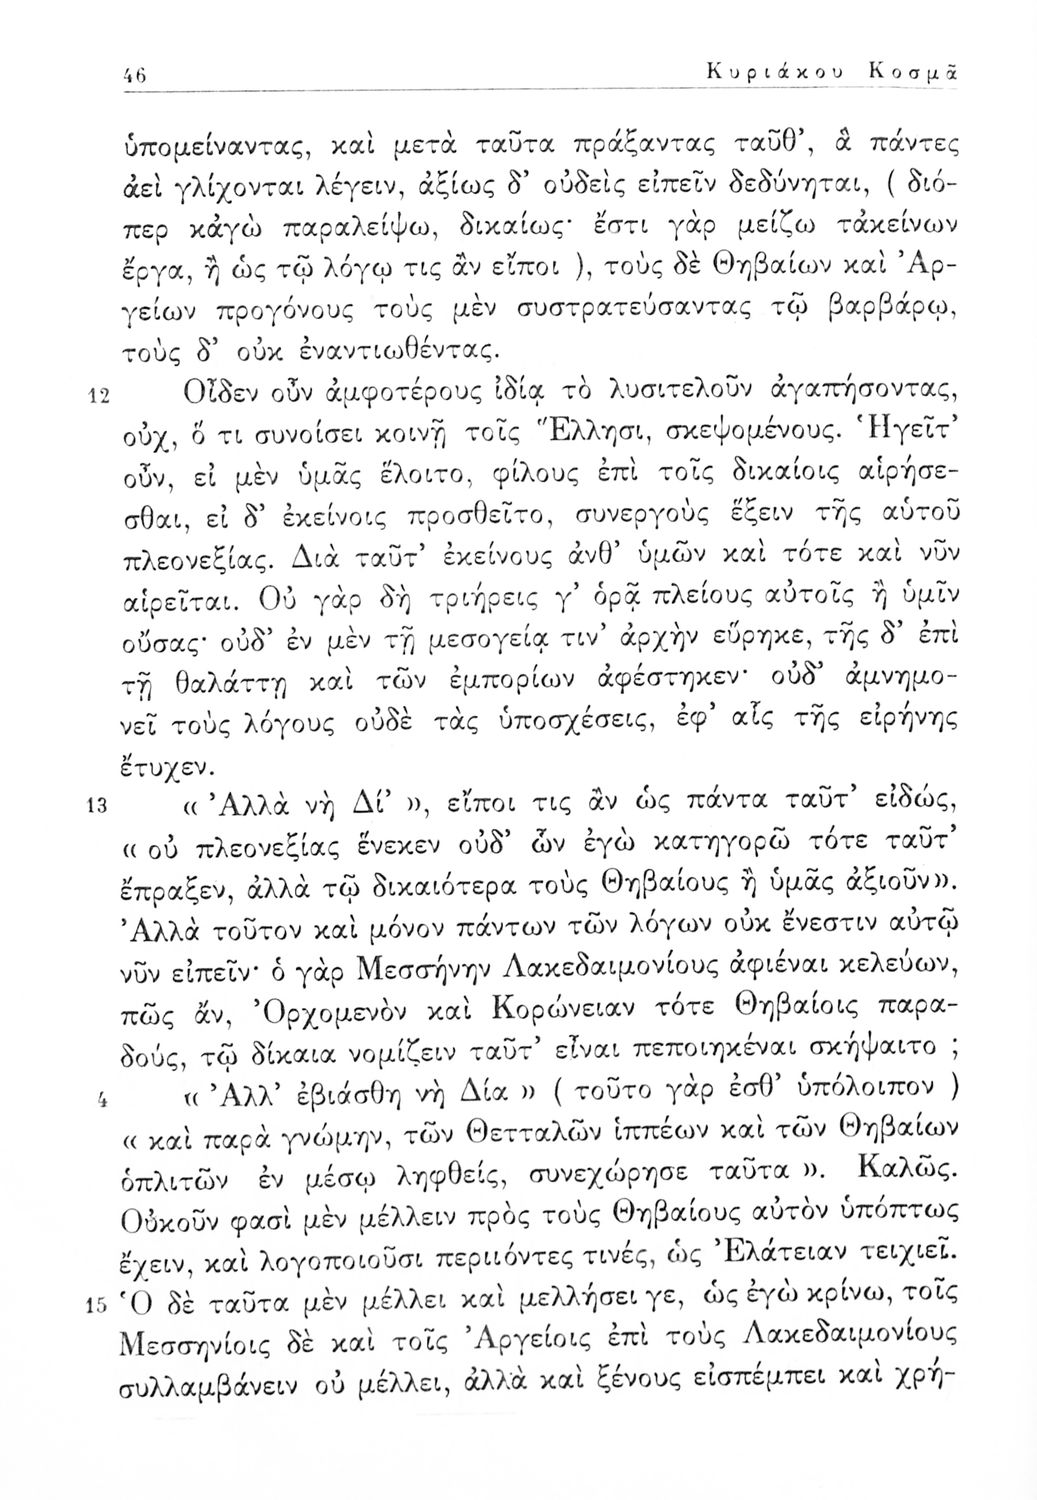 46 Κυριάκου Κοσμᾶ
ὑπομείναντας, καὶ μετὰ ταῦτα πράξαντας ταῦθ’, ἃ πάντες
ἀεὶ γλίχονται λέγειν, ἀξίως δ’ οὐδεὶς εἰπεῖν δεδύνηται, ( διό-
περ κἀγὼ παραλείψω, δικαίως· ἔστι γὰρ μείζω τἀκείνων
ἔργα, ἢ ὡς τῷ λόγῳ τις ἂν εἴποι ), τοὺς δὲ Θηβαίων καὶ Ἀρ-
γείων προγόνους τοὺς μὲν συστρατεύσαντας τῷ βαρβάρῳ,
τοὺς δ’ οὐκ ἐναντιωθέντας.
12 Οἶδεν οὖν ἀμφοτέρους ἰδίᾳ τὸ λυσιτελοῦν ἀγαπήσοντας,
οὐχ, ὅ τι συνοίσει κοινῇ τοῖς Ἕλλησι, σκεψομένους. Ἡγεῖτ’
οὖν, εἰ μὲν ὑμᾶς ἕλοιτο, φίλους ἐπὶ τοῖς δικαίοις αἱρήσε-
σθαι, εἰ δ’ ἐκείνοις προσθεῖτο, συνεργοὺς ἕξειν τῆς αὑτοῦ
πλεονεξίας. Διὰ ταῦτ’ ἐκείνους ἀνθ’ ὑμῶν καὶ τότε καὶ νῦν
αἱρεῖται. Οὐ γὰρ δὴ τριήρεις γ’ ὁρᾷ πλείους αὐτοῖς ἢ ὑμῖν
οὔσας· οὐδ’ ἐν μὲν τῇ μεσογείᾳ τιν’ ἀρχὴν εὕρηκε, τῆς δ’ ἐπὶ
τῇ θαλάττῃ καὶ τῶν ἐμπορίων ἀφέστηκεν· οὐδ’ ἀμνημο-
νεῖ τοὺς λόγους οὐδὲ τὰς ὑποσχέσεις, ἐφ’ αἷς τῆς εἰρήνης
ἔτυχεν.
13 « Ἀλλὰ νὴ Δί’ », εἴποι τις ἂν ὡς πάντα ταῦτ’ εἰδώς,
« οὐ πλεονεξίας ἕνεκεν οὐδ’ ὧν ἐγὼ κατηγορῶ τότε ταῦτ’
ἔπραξεν, ἀλλὰ τῷ δικαιότερα τοὺς Θηβαίους ἢ ὑμᾶς ἀξιοῦν».
Ἀλλὰ τοῦτον καὶ μόνον πάντων τῶν λόγων οὐκ ἔνεστιν αὐτῷ
νῦν εἰπεῖν· ὁ γὰρ Μεσσήνην Λακεδαιμονίους ἀφιέναι κελεύων,
πῶς ἄν, Ὀρχομενὸν καὶ Κορώνειαν τότε Θηβαίοις παρα-
δούς, τῷ δίκαια νομίζειν ταῦτ’ εἶναι πεποιηκέναι σκήψαιτο ;
4 « Ἀλλ’ ἐβιάσθη νὴ Δία » ( τοῦτο γὰρ ἐσθ’ ὑπόλοιπον )
« καὶ παρὰ γνώμην, τῶν Θετταλῶν ἱππέων καὶ τῶν Θηβαίων
ὁπλιτῶν ἐν μέσῳ ληφθείς, συνεχώρησε ταῦτα ». Καλῶς.
Οὐκοῦν φασὶ μὲν μέλλειν πρὸς τοὺς Θηβαίους αὐτὸν ὑπόπτως
ἔχειν, καὶ λογοποιοῦσι περιιόντες τινές, ὡς Ἐλάτειαν τειχιεῖ.
15 Ὁ δὲ ταῦτα μὲν μέλλει καὶ μελλήσει γε, ὡς ἐγὼ κρίνω, τοῖς
Μεσσηνίοις δὲ καὶ τοῖς Ἀργείοις ἐπὶ τοὺς Λακεδαιμονίους
συλλαμβάνειν οὐ μέλλει, ἀλλὰ καὶ ξένους εἰσπέμπει καὶ χρή-